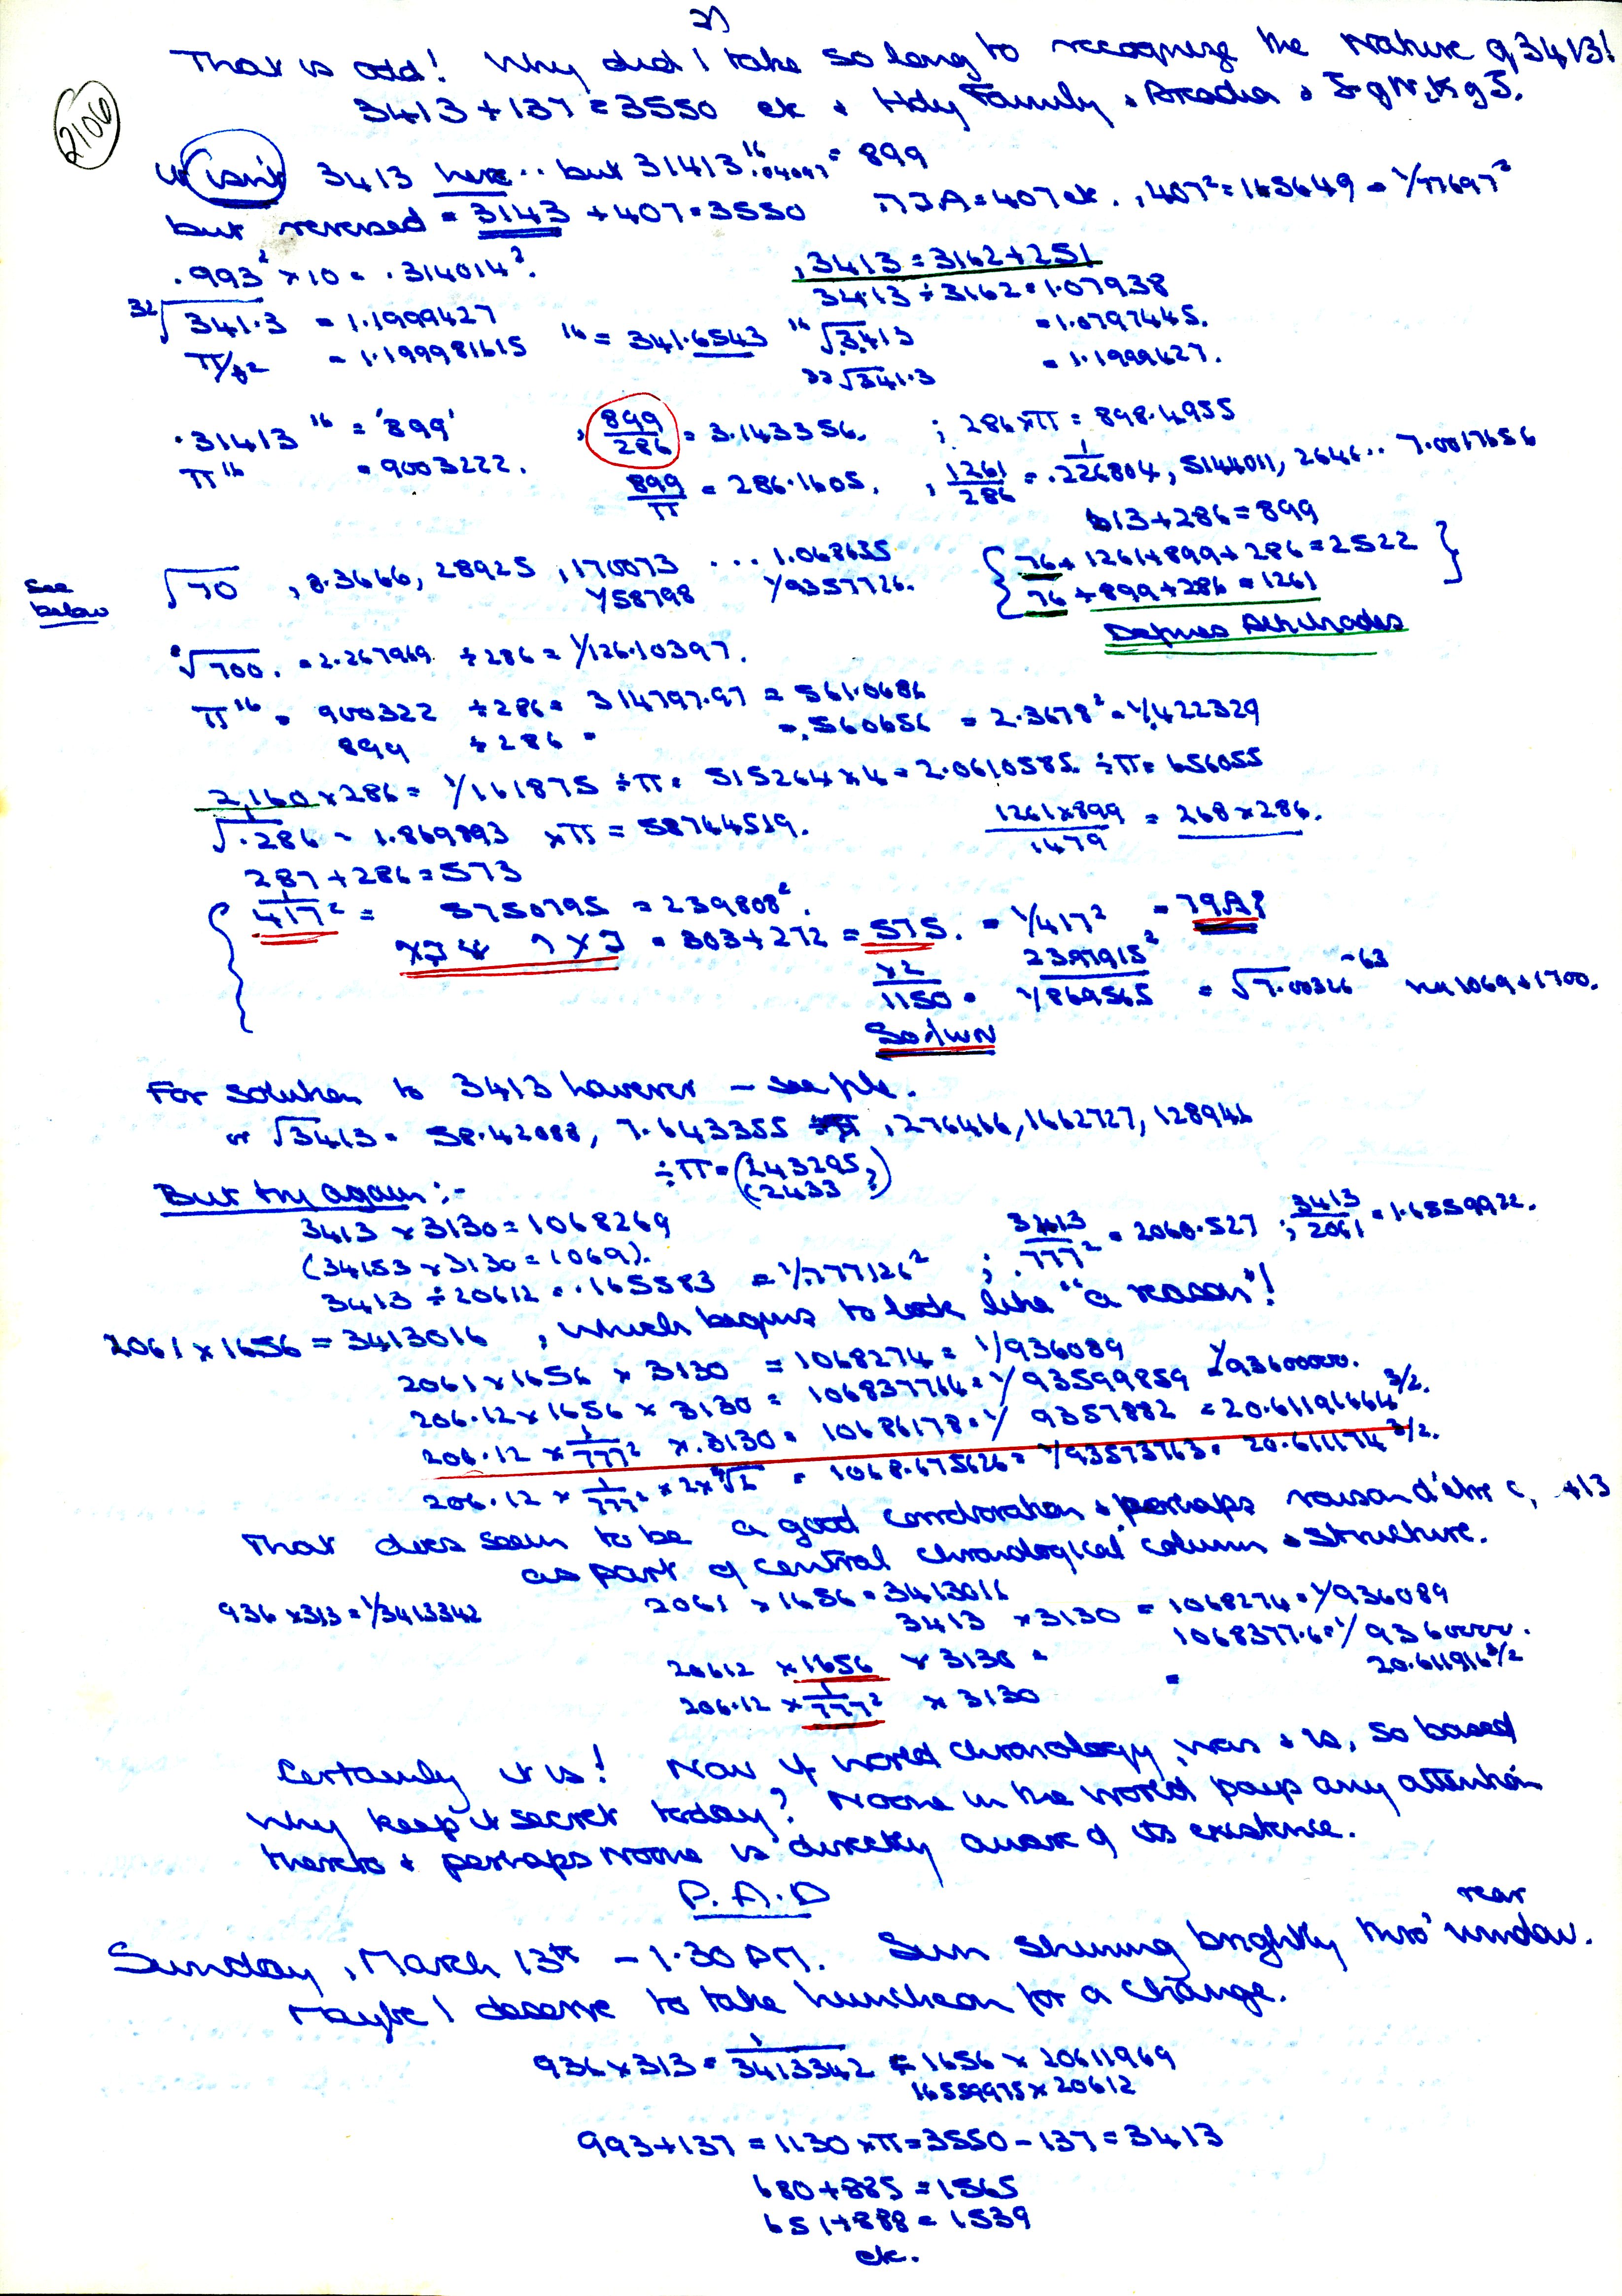 2)
That is odd! Why did I take so long to recognize the Nature of 3413!
2106
3413 + 137 = 3550 etc + Holy Family, + Arcadia +
It isn't 3413 here.. but 31413 16 = 899
but reversed = 3143 + 407 = 3550 = 407 etc. , 407² = 165649 = 1/77697²
.993² × 10 = .314014².
, 3413 = 3162 + 251
34.13 ÷ 3162 = 1.07938
32√341.3 = 1.1999427
16√3.413 = 1.0797445.
= 1.199981615 16 = 341.6543
32√341.3 = 1.1999427.
.31413 16 = '899'
, 899/286 = 3.143356. ; 286 × π = 898.4955
π 16 = 9003222.
899/π = 286.1605. , 1261/286 = 1/.226804, 5144011, 2646.. 7.0017656
613 + 286 = 899
See below
√70 , 8.3666, 28925 , 170073 ... 1.068635
1/58798 1/9357726.
76 + 1261 + 899 + 286 = 2522
76 + 899 + 286 = 1261
Defines
8√700. = 2.267969 ÷ 286 = 1/126.10397.
π 16 = 900322 ÷ 286 = 314797.97 = 561.0686
899 ÷ 286 = = .560656 = 2.3678² = 1/422329
2,160 × 286 = 1/161875 ÷ π = 515264 × 4 = 2.0610585. ÷ π = 656055
1/√.286 = 1.869893 × π = 58744519.
1261 × 899/1479 = 268 × 286.
287 + 286 = 573
1/417² = 5750795 = 239808².
= 303 + 272 = 575. = 1/417² = 79A?
×2/1150 = 2397915²
1/869565 = √7.00326 -63 via 1069 + 1700.
So/wn
For solution to 3413 however - see
or √3413 = 58.42088, 7.643355 , 276466, 1662727, 128946
÷ π = (243295,?)
(2433)
But try again :-
3413 × 3130 = 1068269
(34153 × 3130 = 1069).
3413/.777² = 2060.527 ; 3413/2061 = 1.6559922.
3413 ÷ 20612 = .165583 = 1/.777126² ;
2061 × 1656 = 3413016 , which begins to look like "a reason"!
2061 × 1656 × 3130 = 1068274 = 1/936089
1/93600000.
206.12 × 1656 × 3130 = 106837764 = 1/93599859
206.12 × 1/777² × .3130 = 10686178 = 1/9357882 = 20.61191664 3/2.
206.12 × 1/777² × 2×√2 = 1068.675626 = 1/93573763 = 20.611174 3/2.
That does seem to be a good corroboration + perhaps raison d'être
as part of central chronological column + structure.
936 × 313 = 1/3413342
2061 × 1656 = 3413016
3413 × 3130 = 1068274 = 1/936089
20612 × 1656 × 3130 = 1068377.6 = 1/9360000.
206.12 × 1/777² × 3130 = 20.611916 3/2
Certainly it is! Now if world chronology was + is, so based
why keep it secret today? Noone in the world pays any attention
thereto + perhaps noone is directly aware of its existence.
P. A. D
Sunday, March 13th - 1.30 PM. Sun shining brightly thro' rear window.
Maybe I deserve to take luncheon for a change.
936 × 313 = 1/3413342 = 1656 × 20611969
16559975 × 20612
993 + 137 = 1130 × π = 3550 - 137 = 3413
680 + 885 = 1565
651 + 888 = 1539
etc.